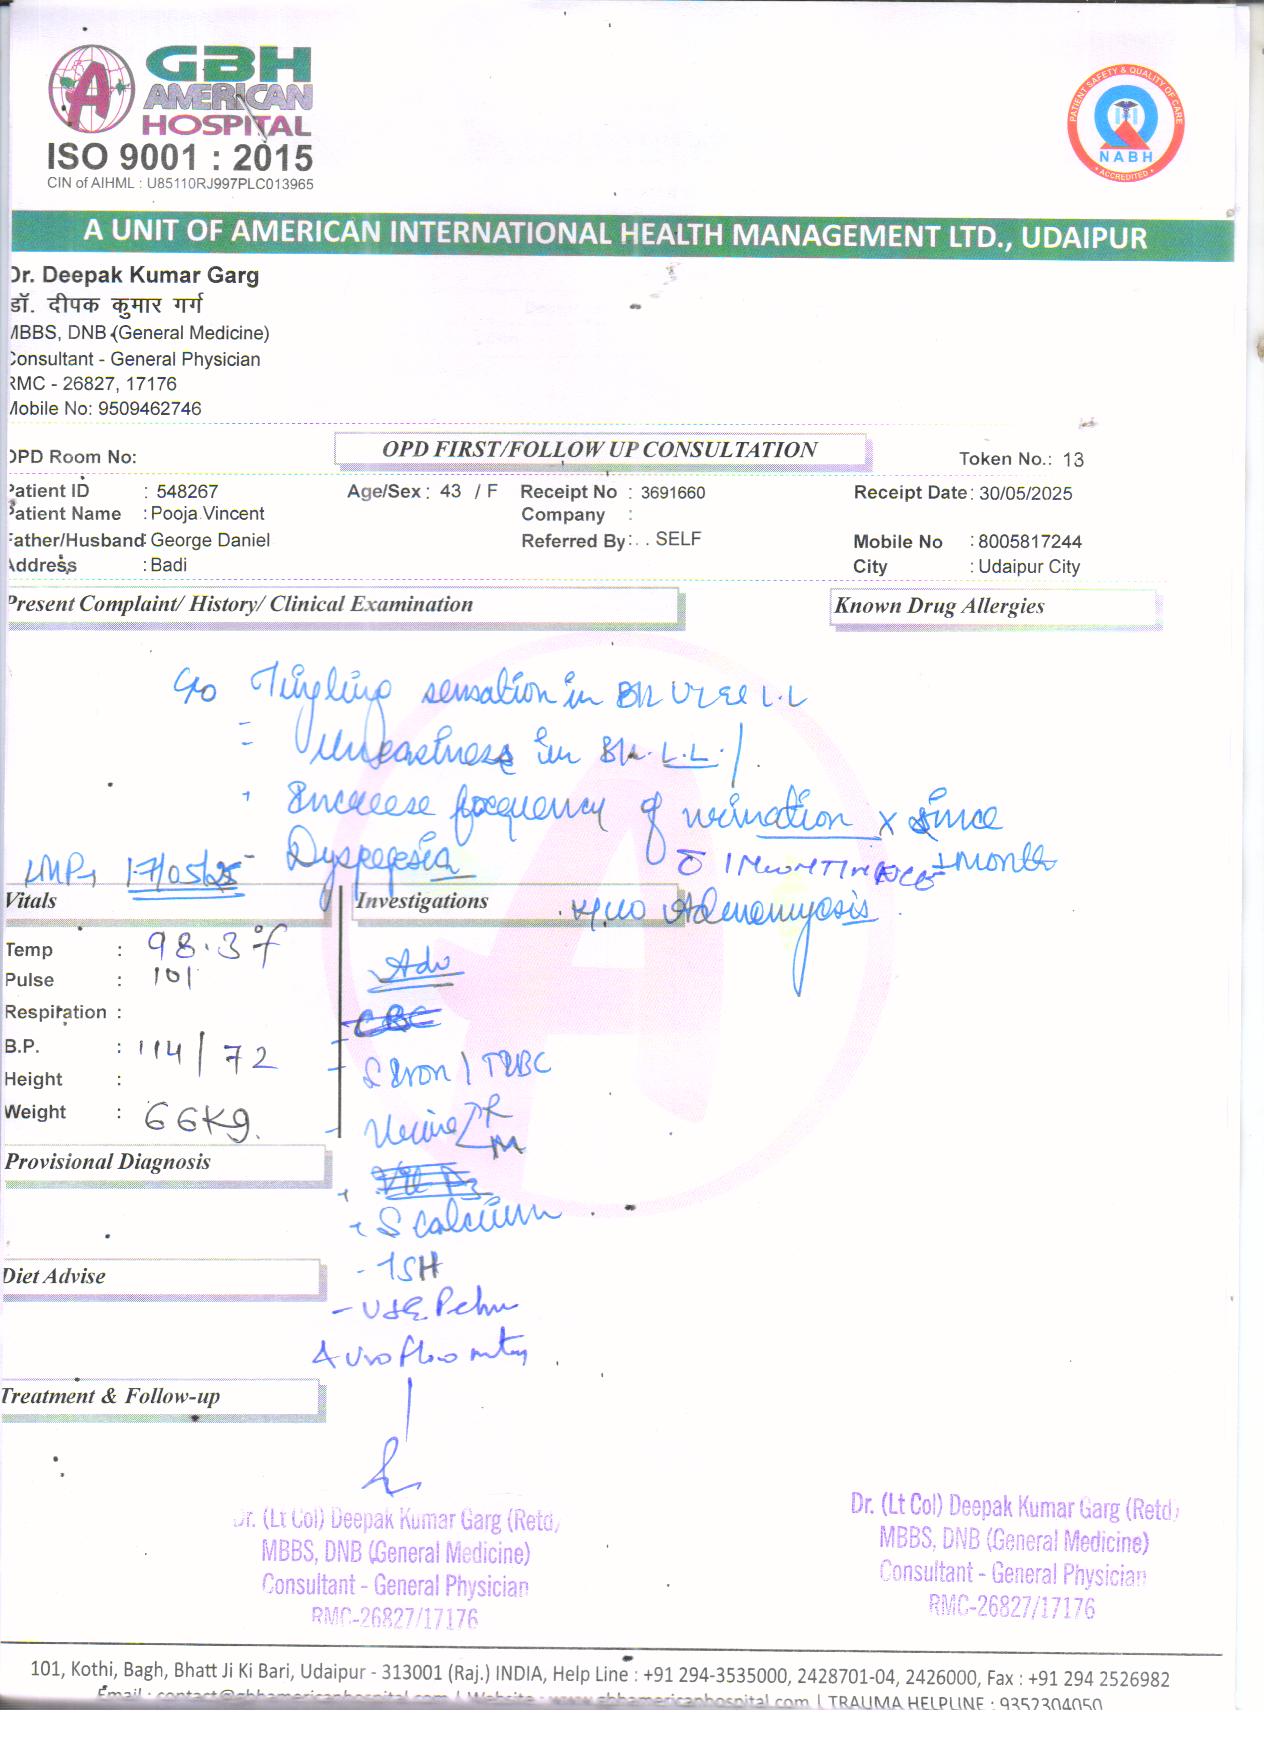 GBH
AMERICAN
HOSPITAL
ISO 9001 : 2015
CIN of AIHML : U85110RJ997PLC013965
PATIENT SAFETY & QUALITY OF CARE
NABH
ACCREDITED
A UNIT OF AMERICAN INTERNATIONAL HEALTH MANAGEMENT LTD., UDAIPUR
Dr. Deepak Kumar Garg
डॉ. दीपक कुमार गर्ग
MBBS, DNB (General Medicine)
Consultant - General Physician
RMC - 26827, 17176
Mobile No: 9509462746
OPD FIRST/FOLLOW UP CONSULTATION
OPD Room No:
Token No.: 13
Patient ID : 548267 Age/Sex : 43 / F Receipt No : 3691660 Receipt Date: 30/05/2025
Patient Name : Pooja Vincent Company :
Father/Husband: George Daniel Referred By: . . SELF Mobile No : 8005817244
Address : Badi City : Udaipur City
Present Complaint/ History/ Clinical Examination Known Drug Allergies
C/o Tingling sensation in B/L UL & L.L
- Uneasiness in B/L. L.L.
- Increase frequency of urination x since
Dyspepsia 1 month
LMP 17/05/25
K/c/o Adenomyosis
Vitals Investigations
Temp : 98.3°f
Pulse : 101
Respiration :
B.P. : 114/72
Height :
Weight : 66Kg.
Adv
CBC
- S Iron / TIBC
- Urine R
M
Vit D3
- S calcium
- TSH
- USG Pelvis
& Uroflowmetry
Provisional Diagnosis
Diet Advise
Treatment & Follow-up
Dr. (Lt Col) Deepak Kumar Garg (Retd)
MBBS, DNB (General Medicine)
Consultant - General Physician
RMC-26827/17176
Dr. (Lt Col) Deepak Kumar Garg (Retd)
MBBS, DNB (General Medicine)
Consultant - General Physician
RMC-26827/17176
101, Kothi, Bagh, Bhatt Ji Ki Bari, Udaipur - 313001 (Raj.) INDIA, Help Line : +91 294-3535000, 2428701-04, 2426000, Fax : +91 294 2526982
Email : contact@gbhamericanhospital.com | Website : www.gbhamericanhospital.com | TRAUMA HELPLINE : 9352304050